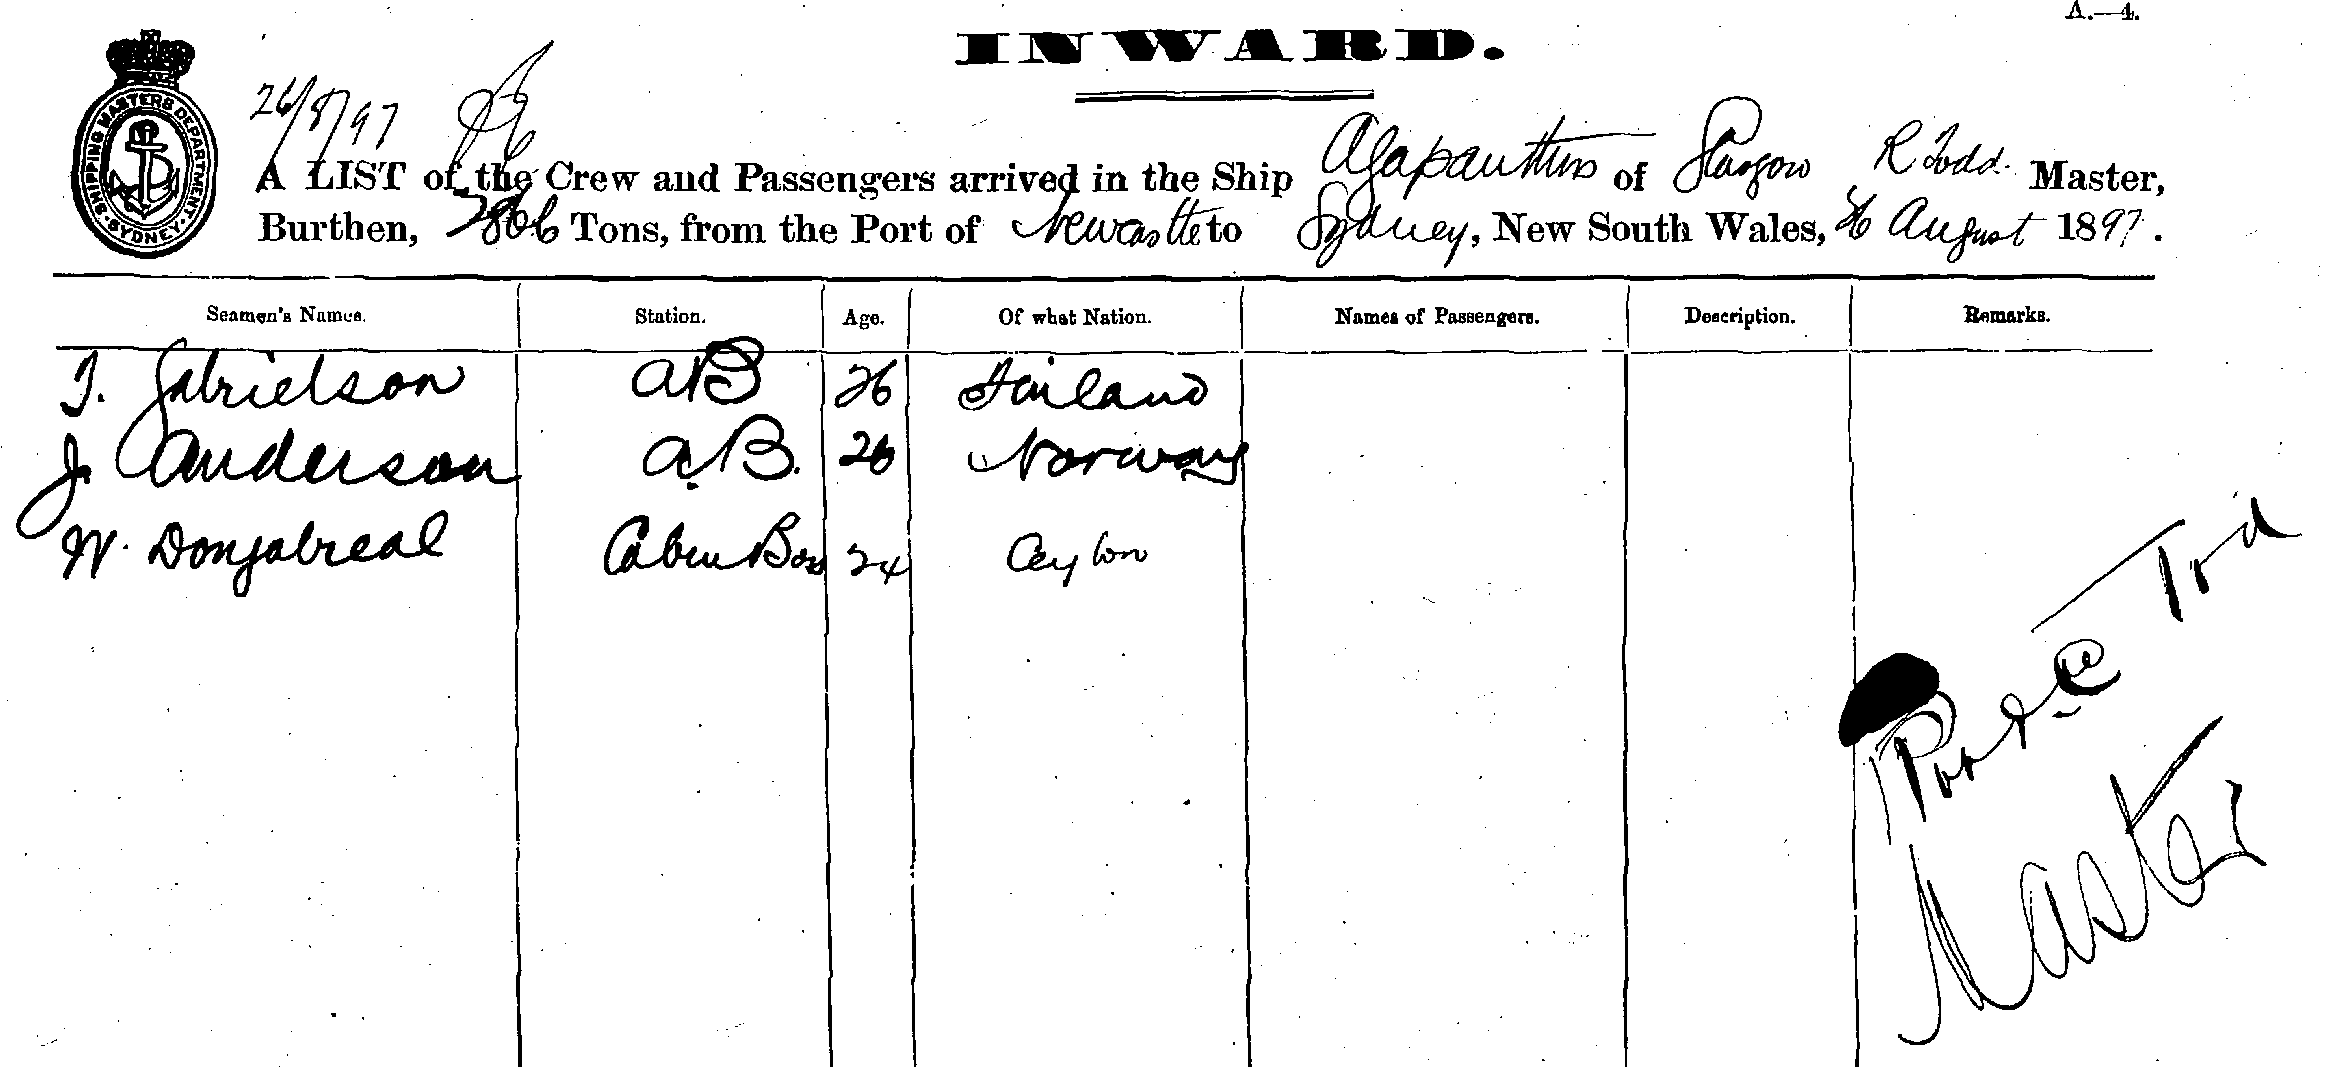 A.—4.
INWARD.
SHIPPING MASTERS DEPARTMENT. SYDNEY.
26/8/97
A LIST of the Crew and Passengers arrived in the Ship Agapanthus of Glasgow R Todd. Master,
Burthen, Tons, from the Port of Newcastle to Sydney, New South Wales, 26 August 1897.
Seamen's Names. Station. Age. Of what Nation. Names of Passengers. Description. Remarks.
T. Gabrielson AB 26 Finland
J. Anderson A.B. 26 Norway
W. Dongabreal Cabin Boy 24 Ceylon
Todd
Master